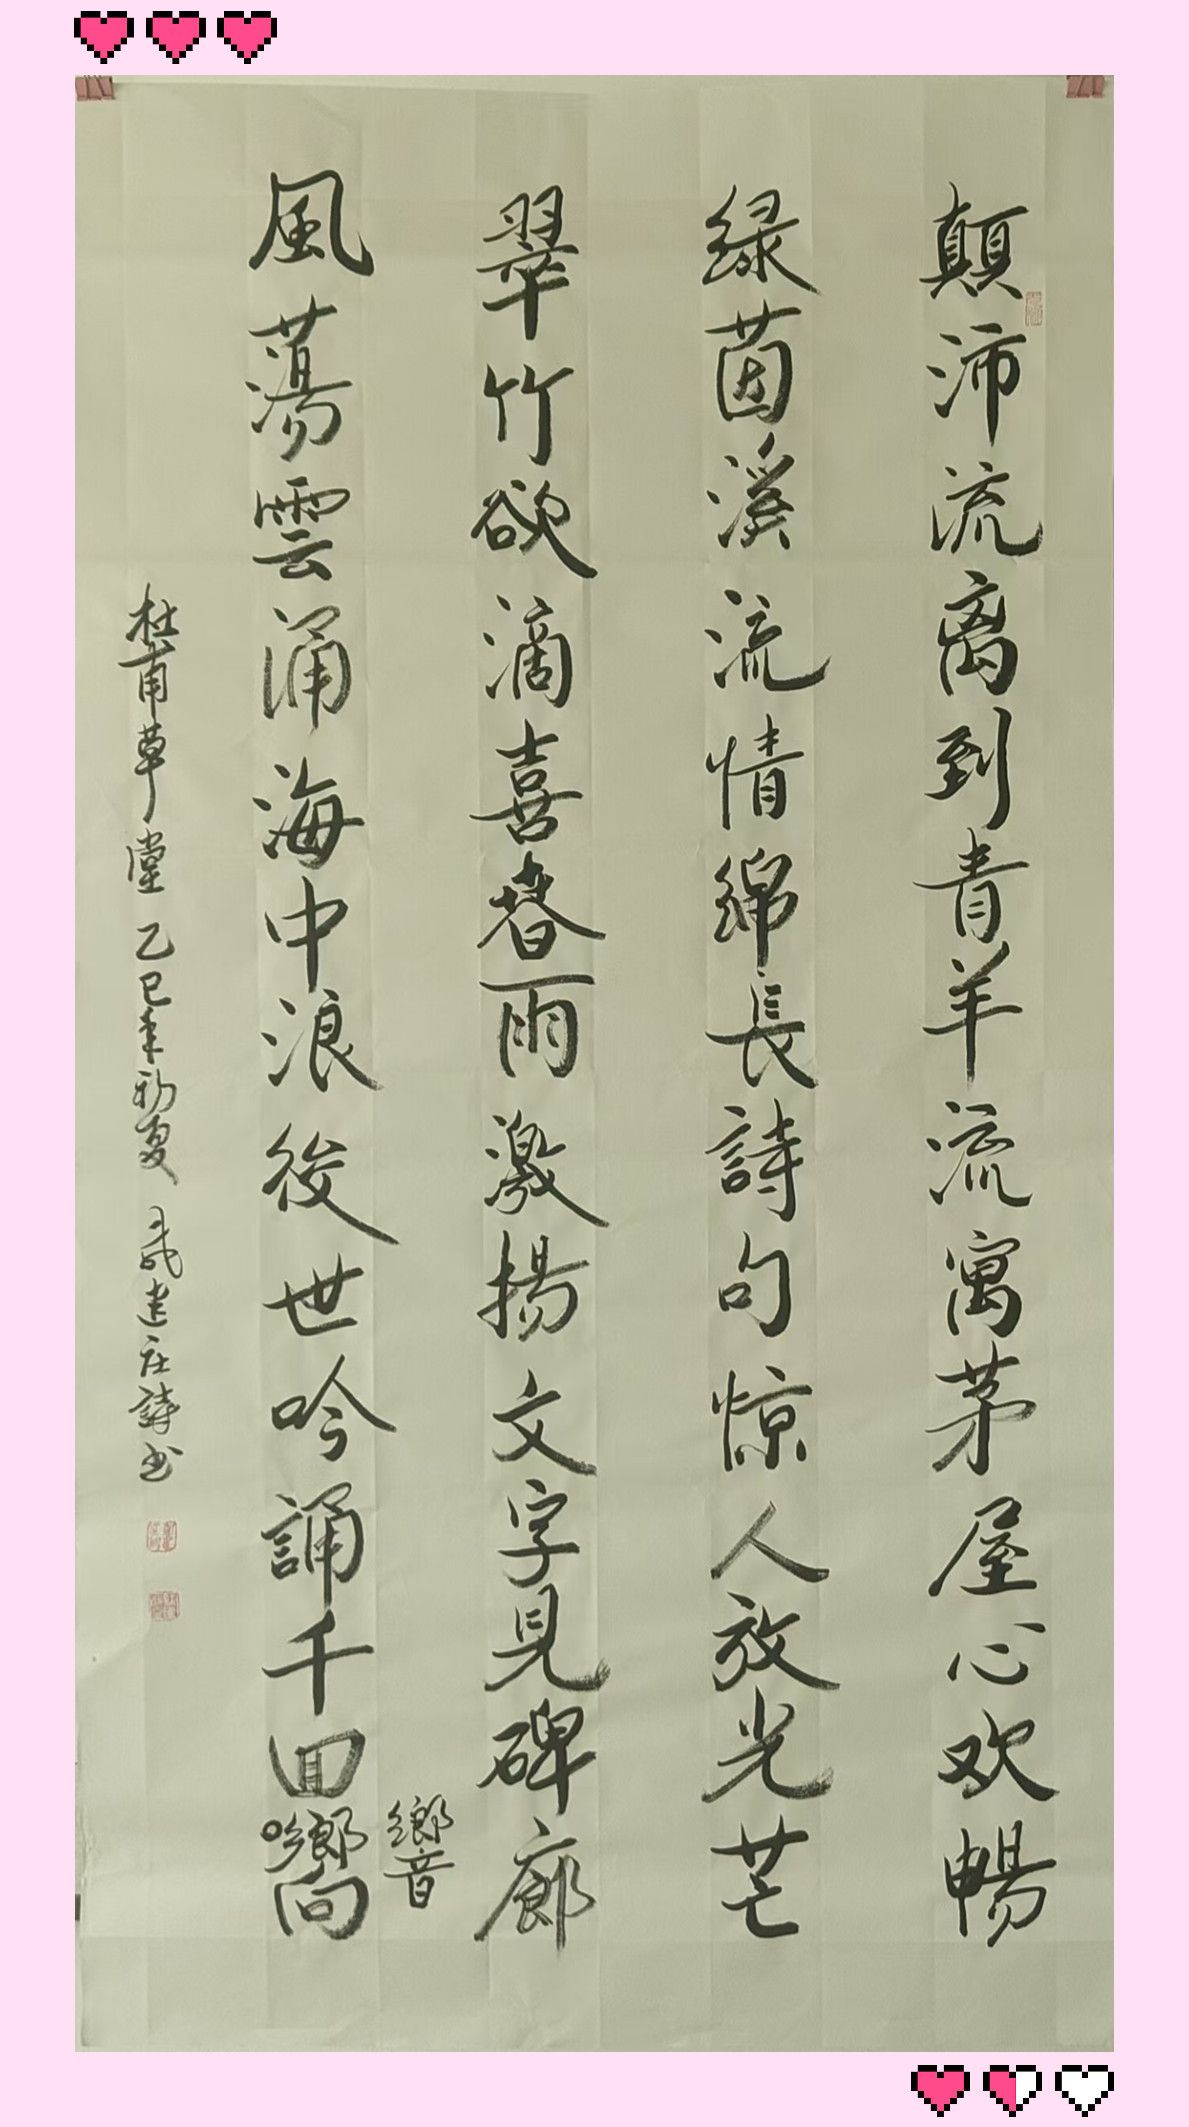 顛沛流离到青羊流寓茅屋心欢暢
绿茵溪流情綿長詩句惊人放光芒
翠竹欲滴喜春雨激揚文字見碑廊
風蕩雲涌海中浪後世吟誦千回嚮
響
杜甫草堂 乙巳年初夏 建庄詩书